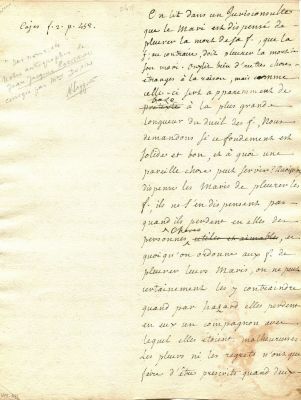 Cujas f. 2. p. 452.
On lit dans un Jurisconsulte
que le Mari est dispensé de
pleurer la mort de sa f., que la
f. au contraire, doit pleurer la mort de
son mari.
étranges à la raison, mais comme
celle-ci sert apparemment de
base
à la plus grande
longueur du deuil des f. Nous
demandons si ce fondement est
solide et bon, et à quoi une
pareille chose peut servir.
dispense les Maris de pleurer les
f., ils ne s'en dispensent pas
quand ils perdent en elles des
chères
personnes utiles et aimables, et
quoiqu'on ordonne aux f. de
pleurer leurs Maris, on ne peut
certainement les y contraindre
quand par hazard elles perdent
en eux un compagnon avec
lequel elles étoient malheureuses
Les pleurs ni les regrets n'ont que
faire d'être prescrits quand deux